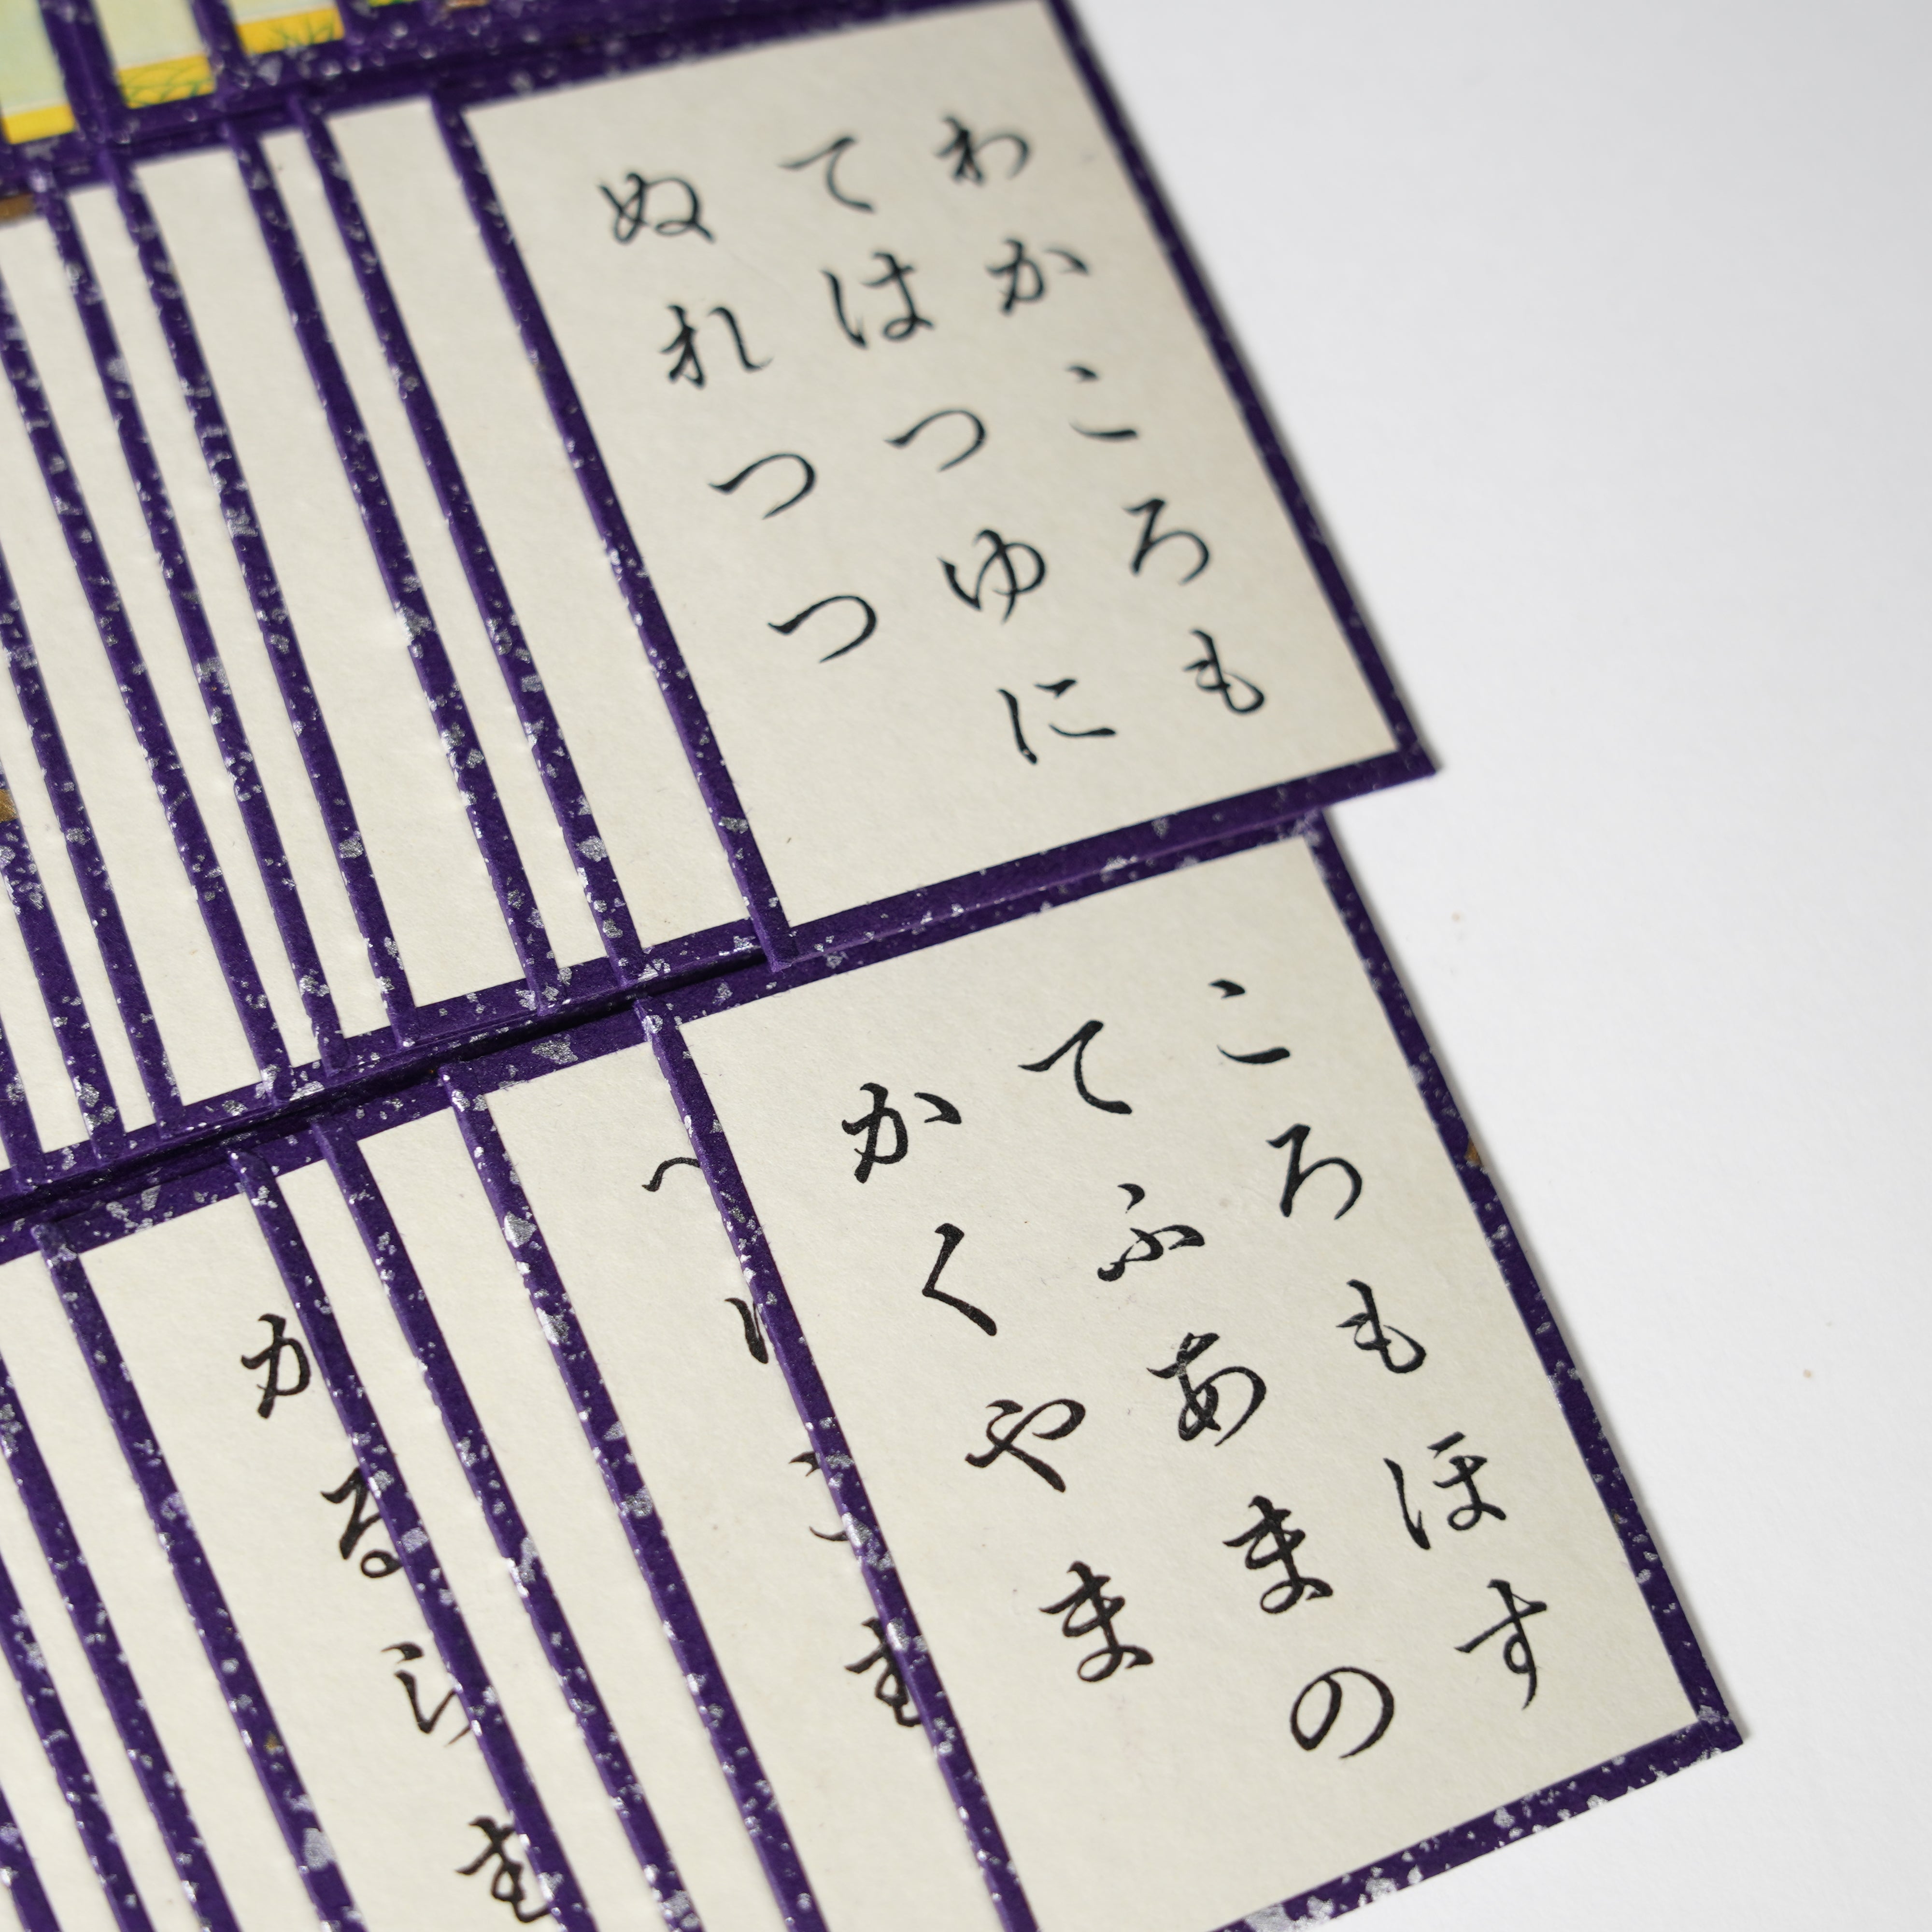 わかころも
てはつゆに
ぬれつつ
ころもほす
てふあまの
かくやま